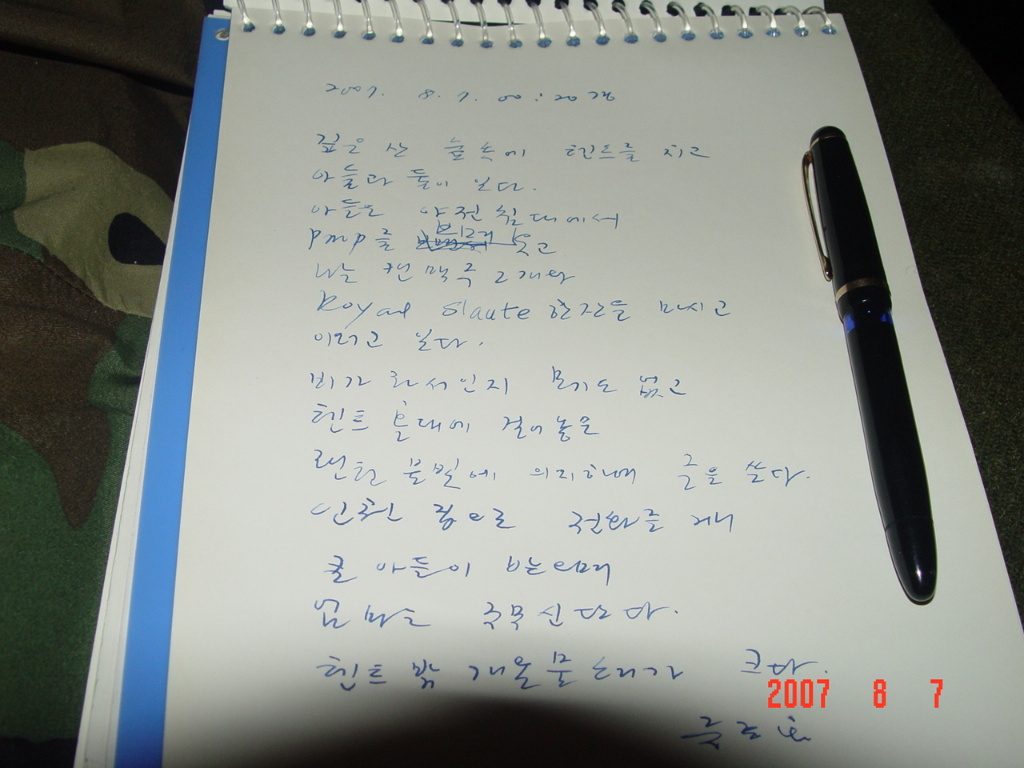 2007. 8. 7. 00:20
깊은 산 숲속에 텐트를 치고
아들과 둘이 있다.
아들은 야전침대에서
pmp를 보고
나는 캔맥주 2개와
Royal Slaute 한잔을 마시고
이러고 있다.
비가 와서인지 모기도 없고
텐트 폴대에 걸어놓은
랜턴 불빛에 의지하여 글을 쓴다.
인천 집으로 전화를 거니
큰 아들이 받는데
엄마는 주무신단다.
텐트 밖 개울물소리가 크다.
2007 8 7